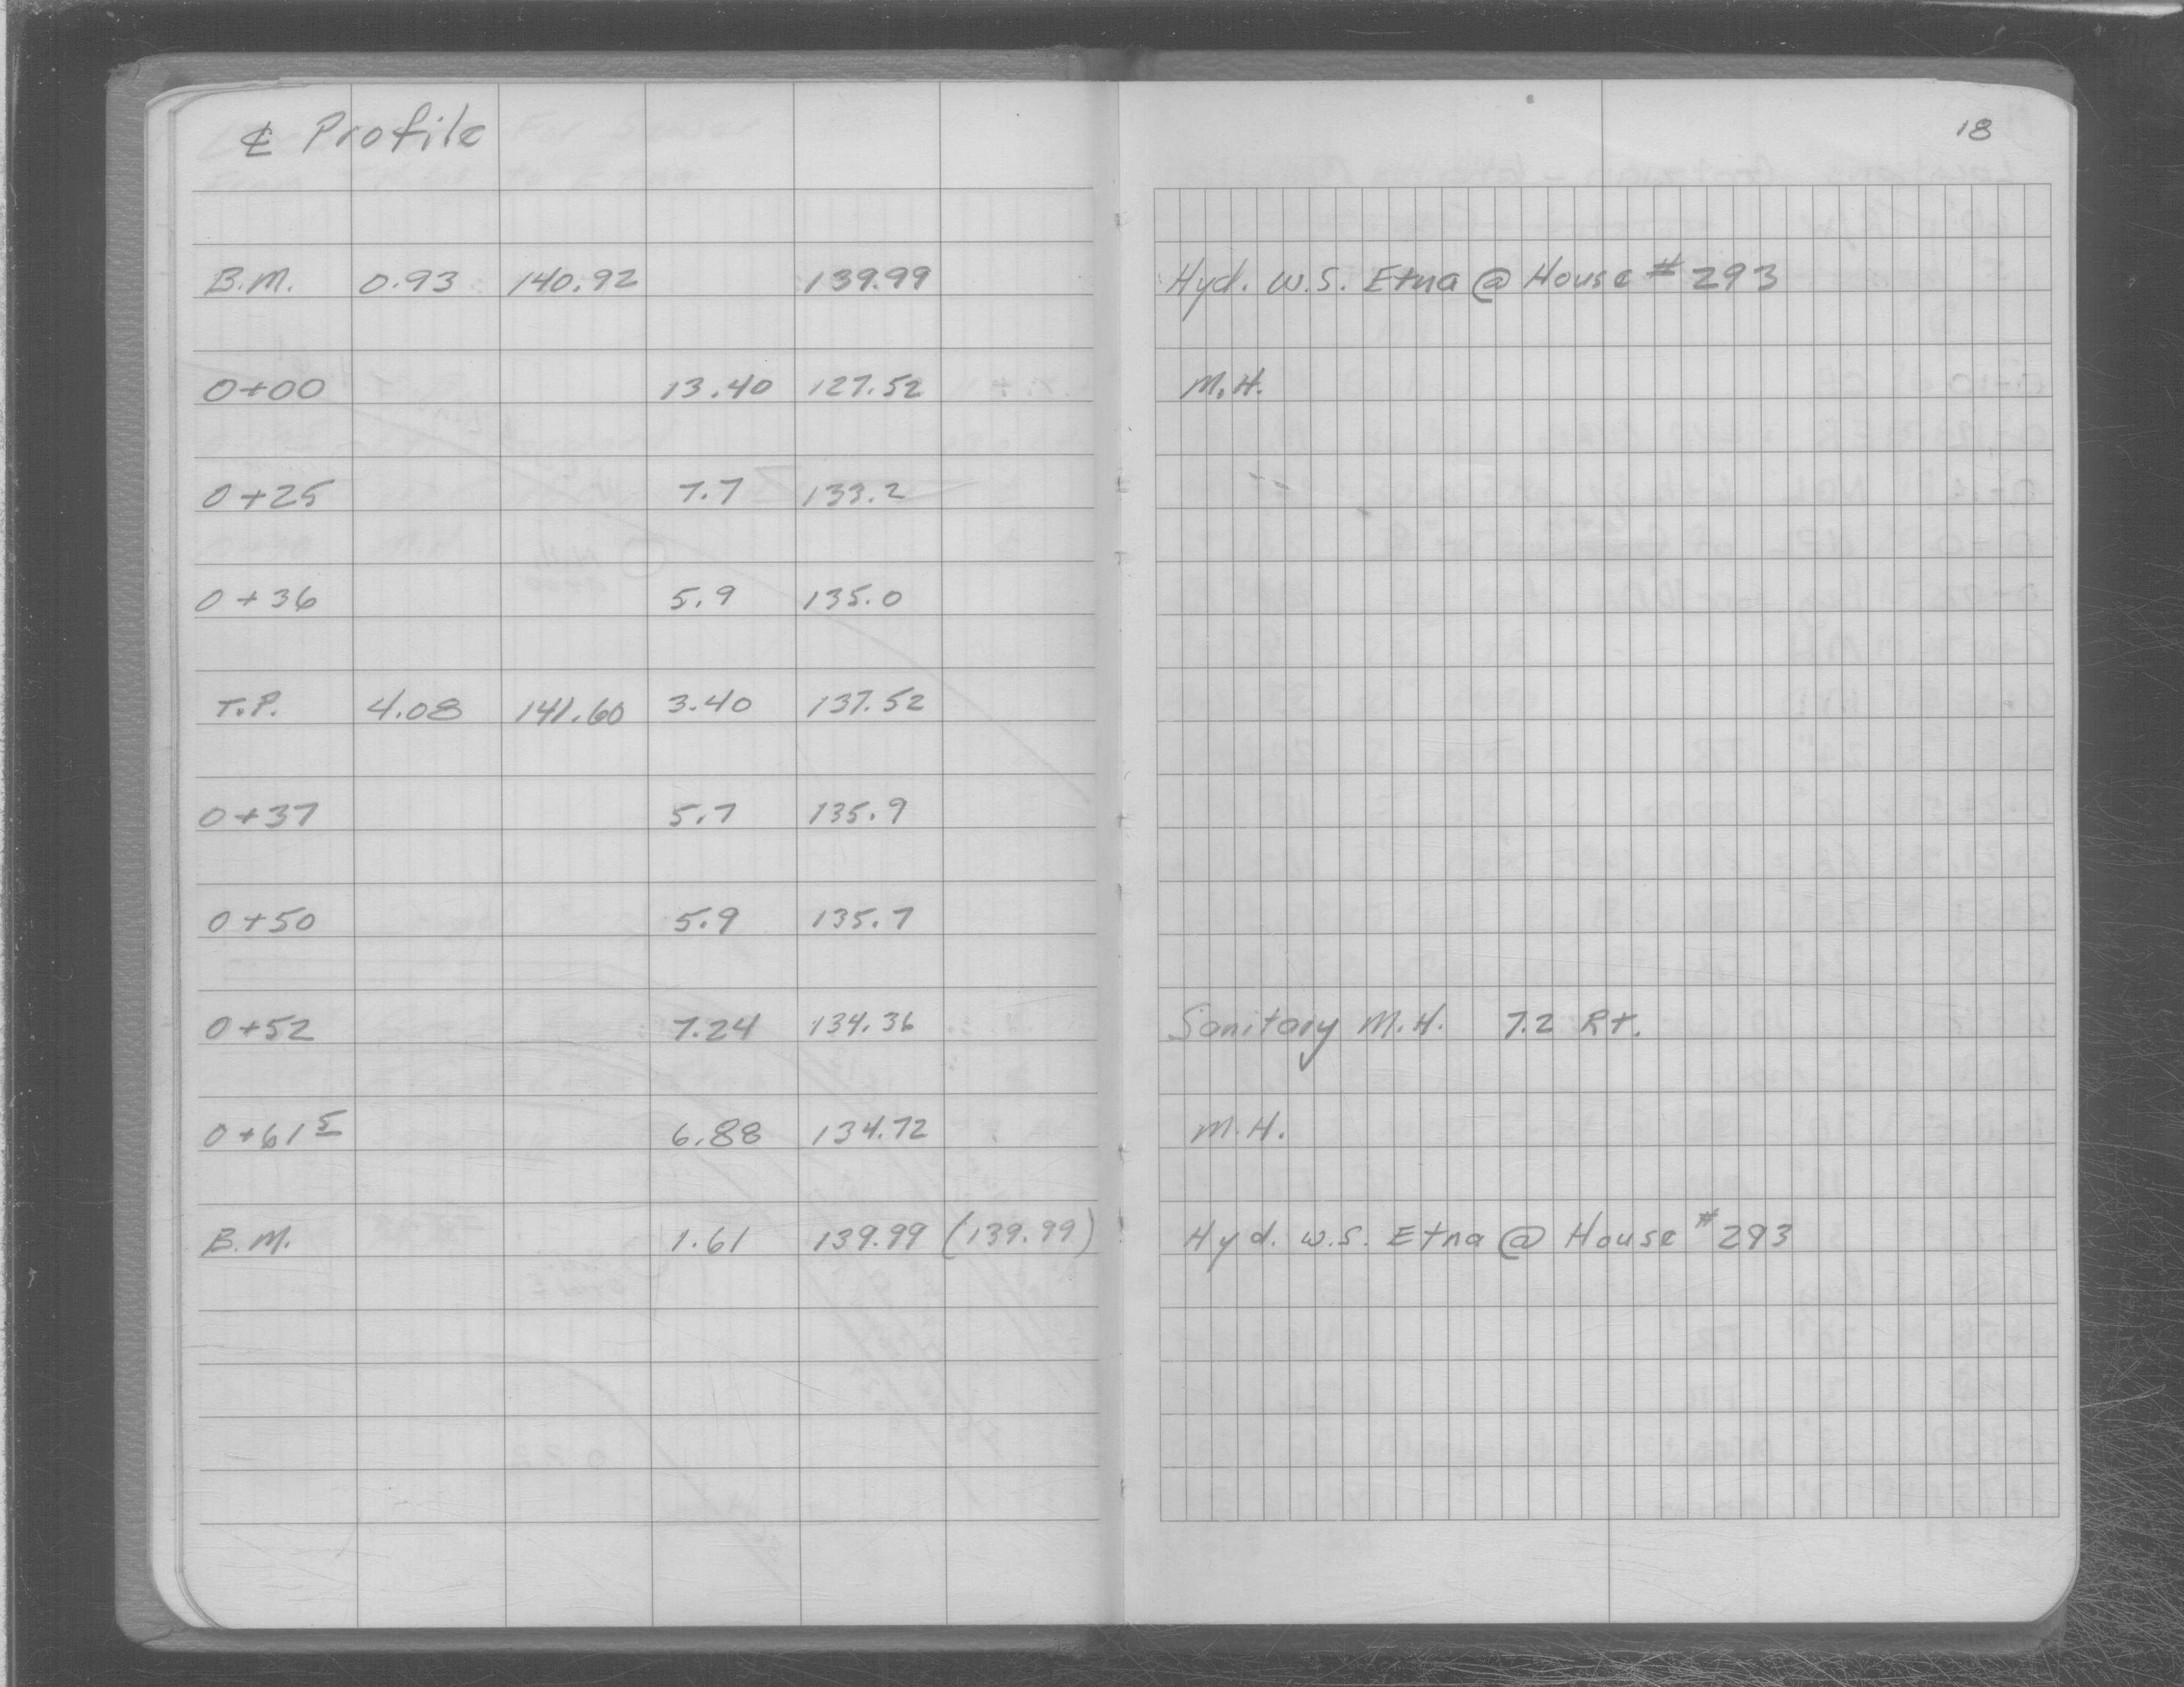 ℄ Profile
18
B.M. 0.93 140.92 139.99 Hyd. W.S. Etna @ House # 293
0+00 13.40 127.52 M.H.
0+25 7.7 133.2
0+36 5.9 135.0
T.P. 4.08 141.60 3.40 137.52
0+37 5.7 135.9
0+50 5.9 135.7
0+52 7.24 134.36 Sanitary M.H. 7.2 Rt.
0+61 5 6.88 134.72 M.H.
B.M. 1.61 139.99 (139.99) Hyd. W.S. Etna @ House # 293